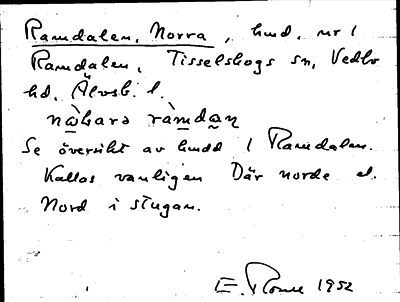 Ramdalen, Norra, hmd. nr 1
Ramdalen, Tisselskogs sn, Vedbo
hd, Älvsb. l.
nò̱harə ràmda̱n
Se översikt av hmdd i Ramdalen.
Kallas vanligen Där norde el.
Nord i stugan.
E. 1952